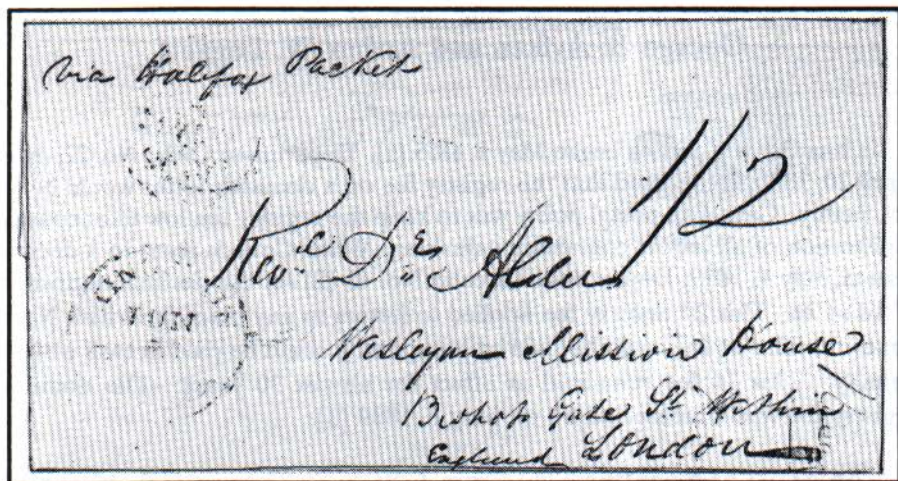 via Halifax Packet
1/2
Revd Dr Alder
Wesleyan Mission House
Bishop Gate St Within
England London